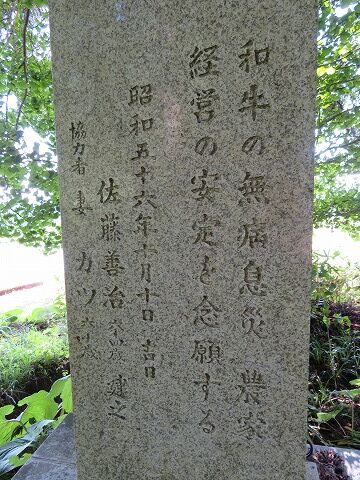 和牛の無病息災 農家
経営の安定を念願する
昭和五十六年十月十日 吉日
佐藤善治 建之
協力者 妻 カツ